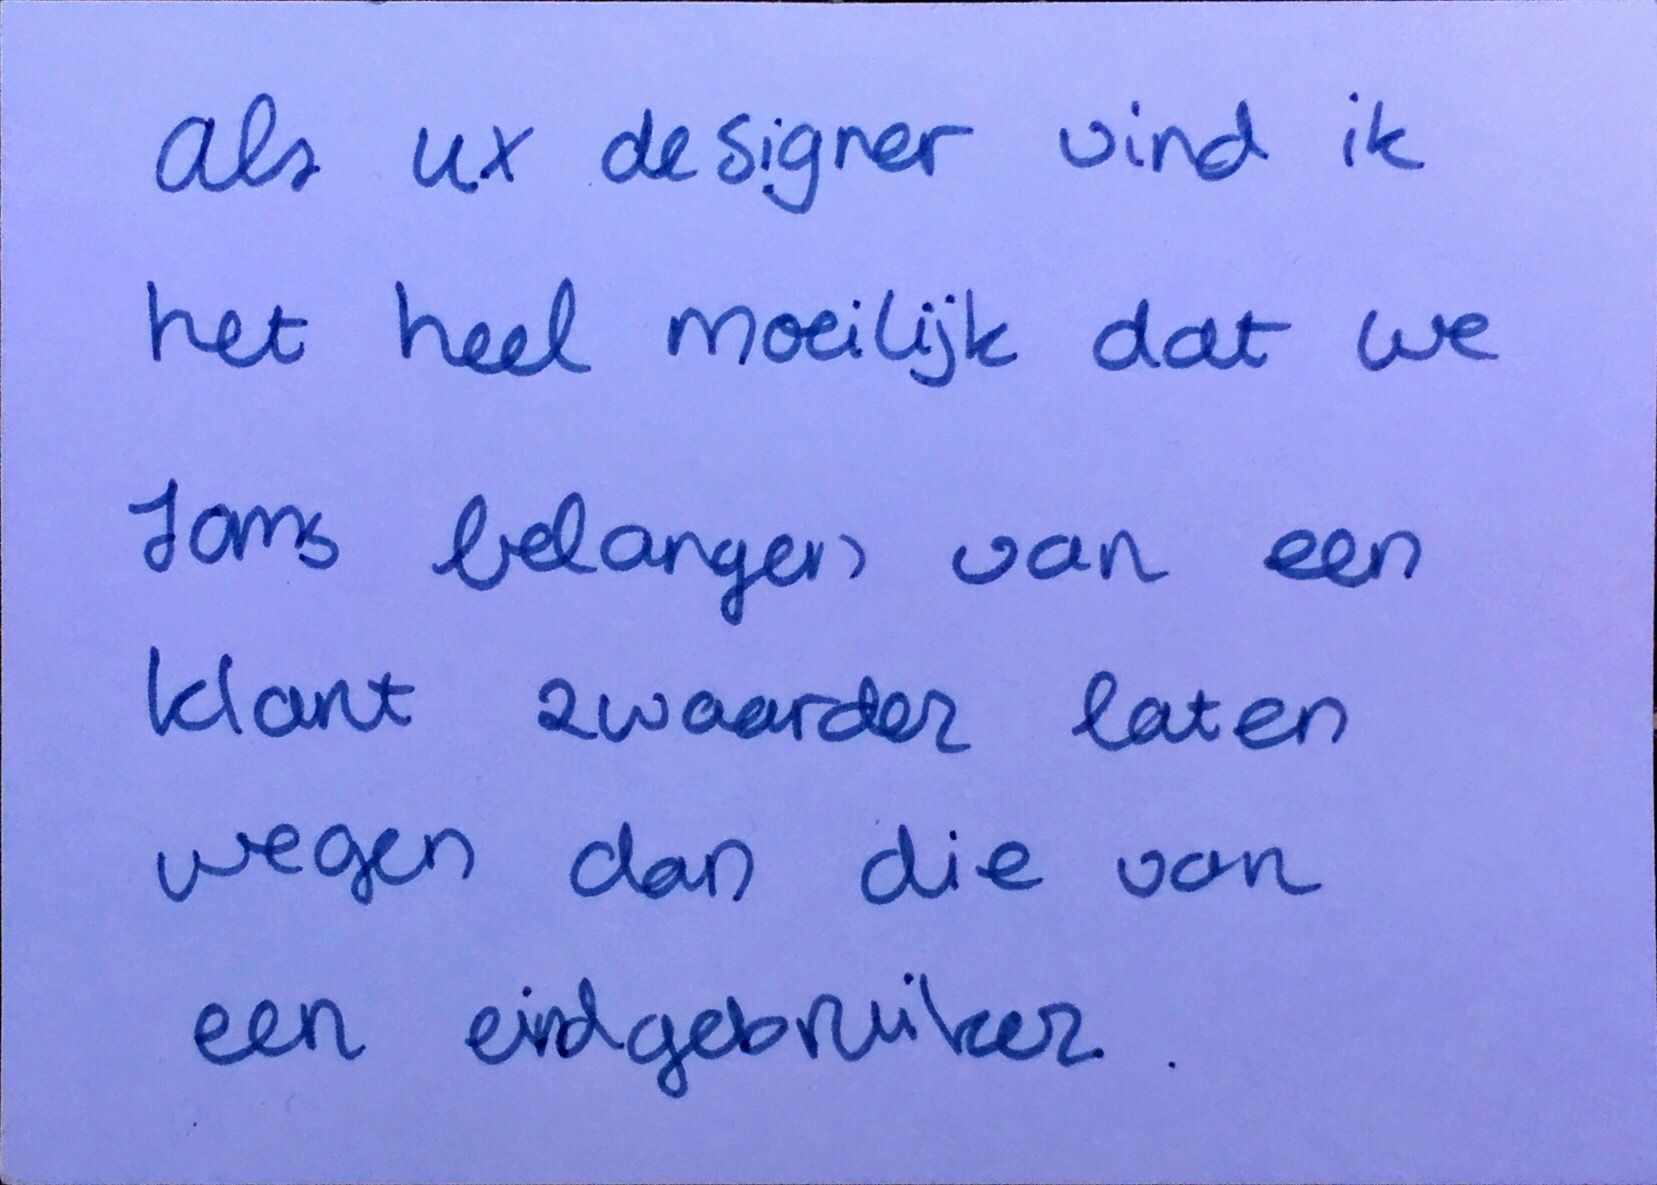 Als ux designer vind ik
het heel moeilijk dat we
soms belangen van een
klant zwaarder laten
wegen dan die van
een eindgebruiker.